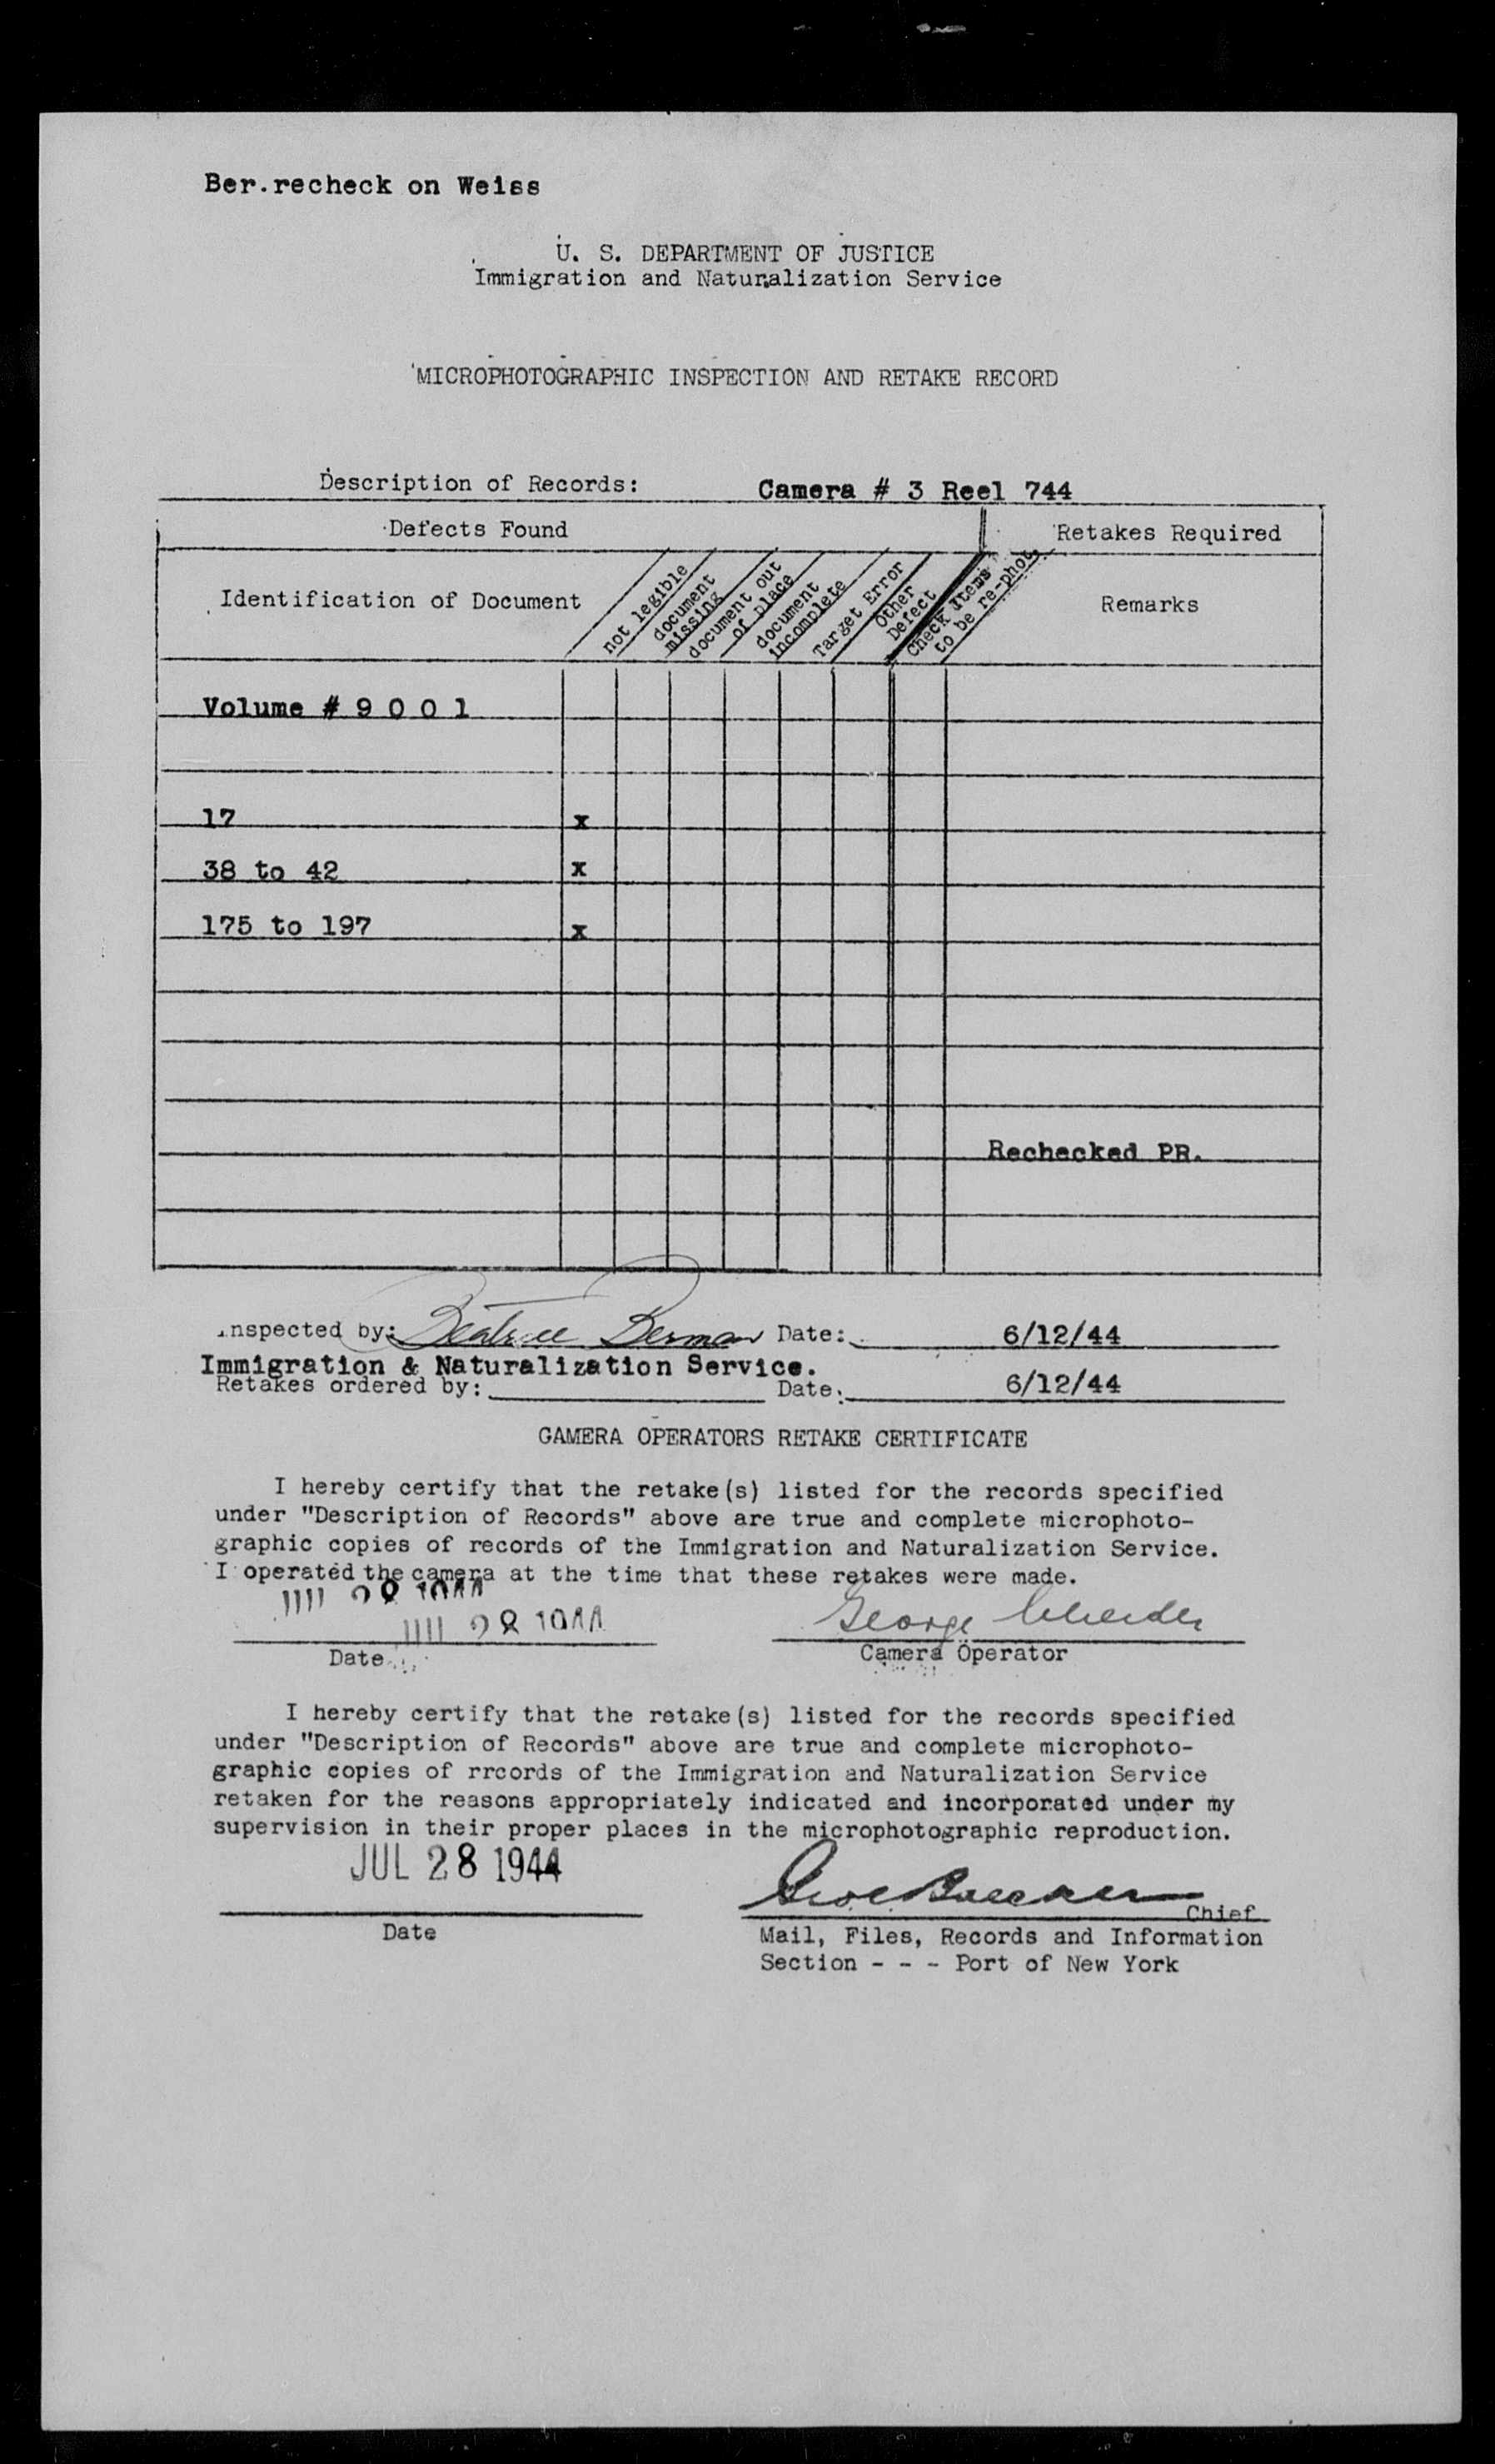 Ber.recheck on Weiss
U. S. DEPARTMENT OF JUSTICE
Immigration and Naturalization Service
MICROPHOTOGRAPHIC INSPECTION AND RETAKE RECORD
Description of Records: Camera # 3 Reel 744
Defects Found
Retakes Required
Identification of Document
not legible
document
missing
document out
of place
document
incomplete
Target Error
Other
Defect
Check Items
to be re-phot.
Remarks
Volume # 9 0 0 1
17 x
38 to 42 x
175 to 197 x
Rechecked PR.
nspected by: Beatrice Berman Date: 6/12/44
Immigration & Naturalization Service.
Retakes ordered by: Date: 6/12/44
GAMERA OPERATORS RETAKE CERTIFICATE
I hereby certify that the retake(s) listed for the records specified
under "Description of Records" above are true and complete microphoto-
graphic copies of records of the Immigration and Naturalization Service.
I operated the camera at the time that these retakes were made.
George
Date
Camera Operator
I hereby certify that the retake(s) listed for the records specified
under "Description of Records" above are true and complete microphoto-
graphic copies of rrcords of the Immigration and Naturalization Service
retaken for the reasons appropriately indicated and incorporated under my
supervision in their proper places in the microphotographic reproduction.
JUL 28 1944
Chief
Date
Mail, Files, Records and Information
Section - - - Port of New York